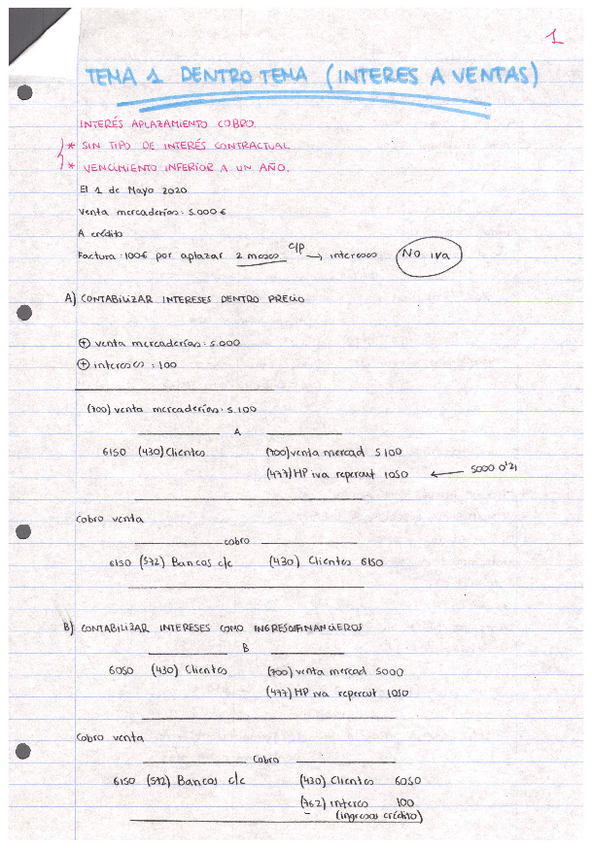 1
TEMA 1 DENTRO TEMA (INTERES A VENTAS)
INTERÉS APLAZAMIENTO COBRO.
* SIN TIPO DE INTERÉS CONTRACTUAL
* VENCIMIENTO INFERIOR A UN AÑO.
El 1 de Mayo 2020
Venta mercaderías: 5.000 €
A crédito
Factura: 100€ por aplazar 2 meses c/p → intereses No iva
A) CONTABILIZAR INTERESES DENTRO PRECIO
+ venta mercaderías: 5.000
+ intereses: 100
(700) venta mercaderías: 5.100
A
6150 (430) Clientes (700) venta mercad 5100
(477) HP iva repercut 1050 ← 5000 0'21
Cobro venta
cobro
6150 (572) Bancos c/c (430) Clientes 6150
B) CONTABILIZAR INTERESES COMO INGRESOS FINANCIEROS
B
6050 (430) Clientes (700) venta mercad 5000
(477) HP iva repercut 1050
Cobro venta
Cobro
6150 (572) Bancos c/c (430) Clientes 6050
(762) interes 100
(ingresos crédito)